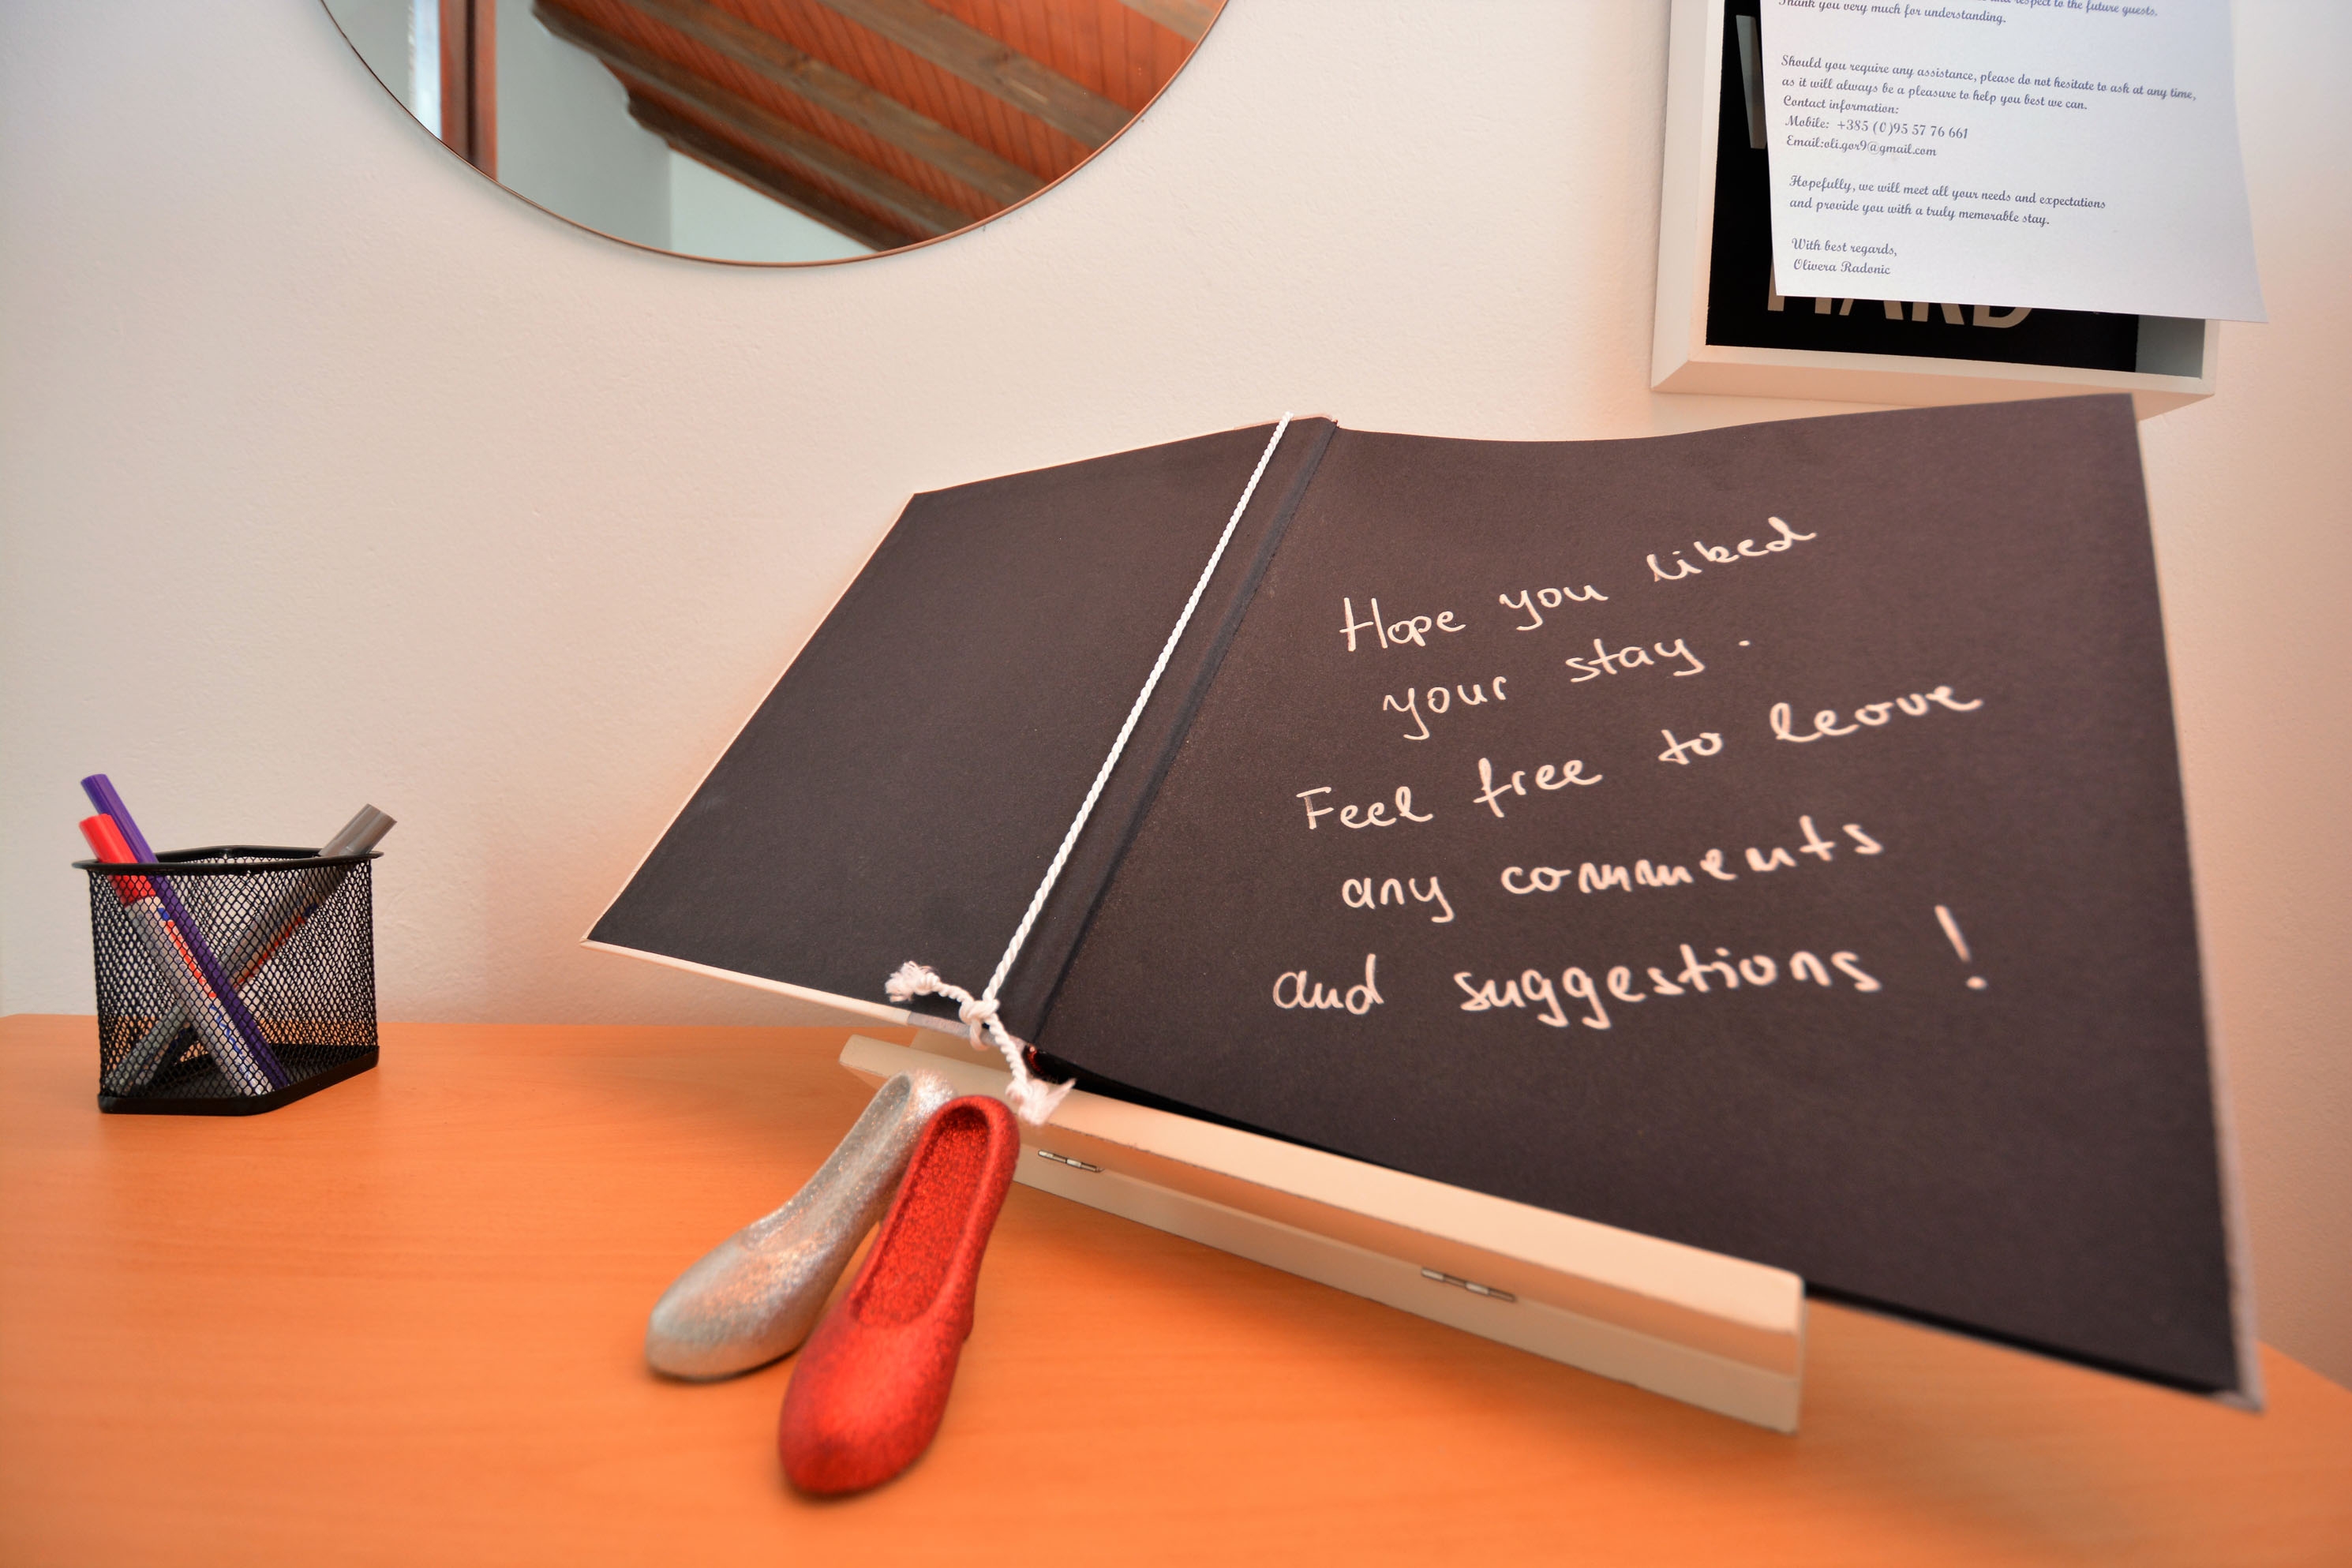 and respect to the future guests.
Thank you very much for understanding.
Should you require any assistance, please do not hesitate to ask at any time,
as it will always be a pleasure to help you best we can.
Contact information:
Mobile: +385 (0)95 57 76 661
Email:oli.gor9@gmail.com
Hopefully, we will meet all your needs and expectations
and provide you with a truly memorable stay.
With best regards,
Olivera Radonic
HARD
Hope you liked
your stay.
Feel free to leave
any comments
and suggestions !